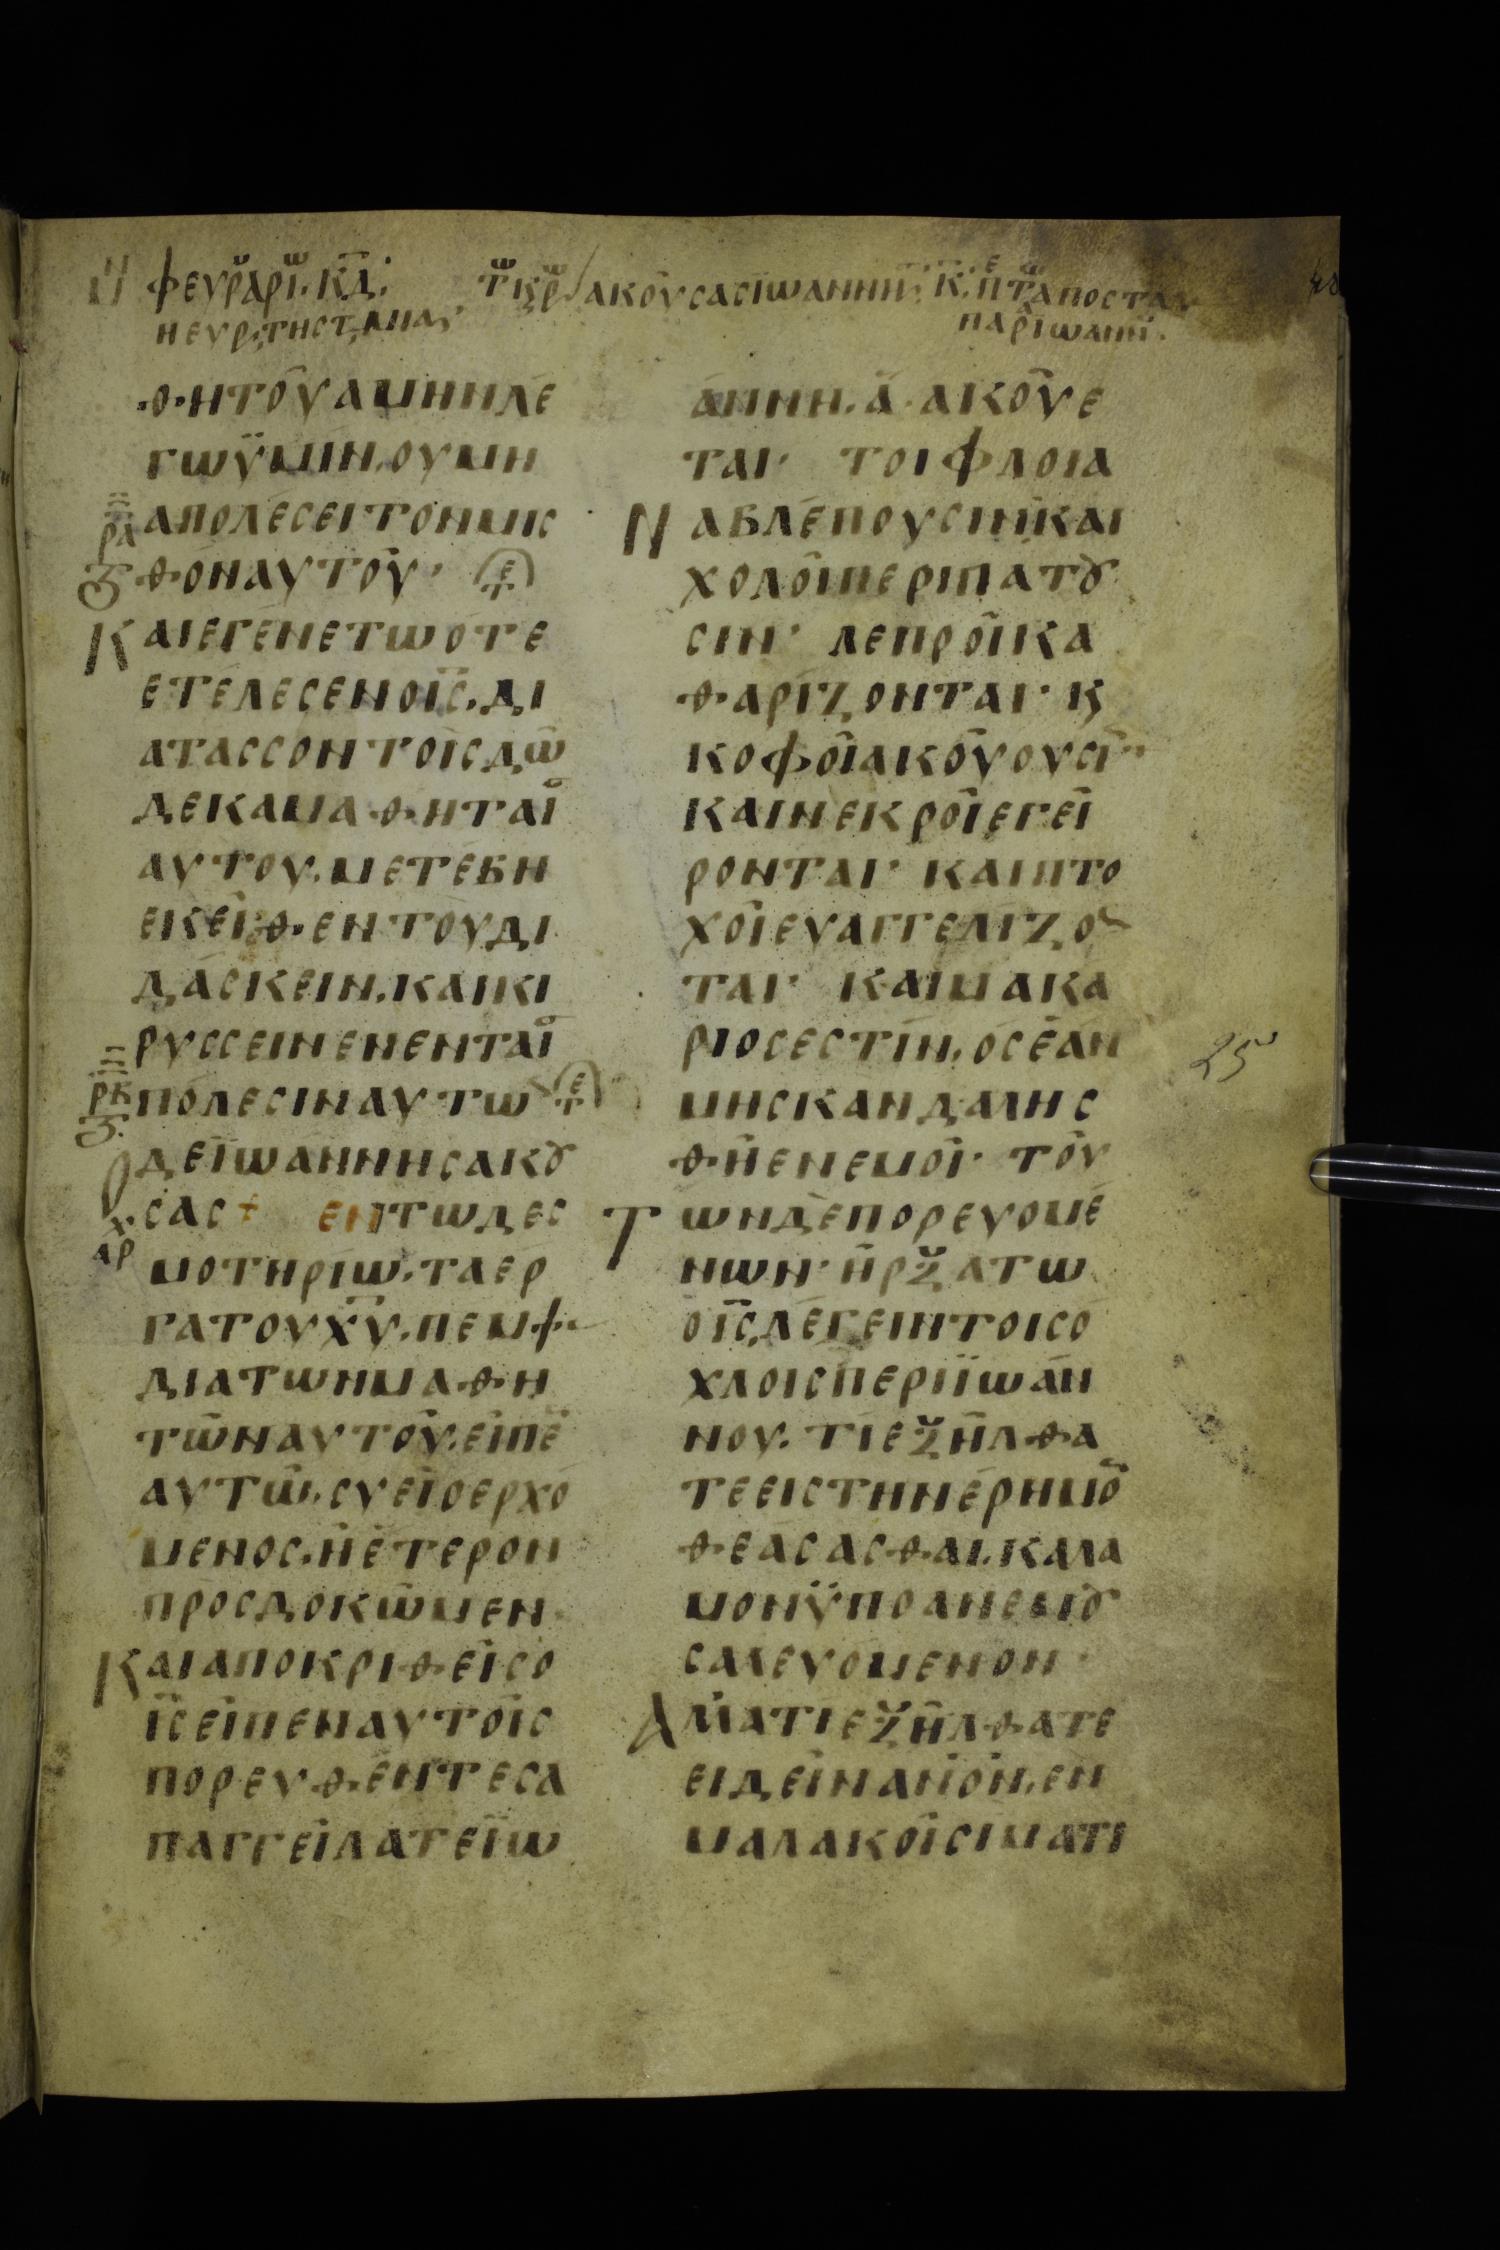 φευραρι. κδ.
ηευρ,τησ τ,
τω κρ ακουσασ ϊωαννησ. κ.
ναρ ϊωανν.
θητοῦ αμην λέ
γω ϋμῖν. ου μη
ρα απολέσει τον μισ
θὸν αυτοῦ· τε
Και εγένετω ότε
ετέλεσεν ο ϊσ. δι
ατασσον τοῖσ δω
δεκα μαθηταῖσ
αυτου. μετέβη
εκεῖθεν τοῦ δι
δάσκειν. και κι
ρυσσειν εν εν ταῖσ
ρβ πόλεσιν αυτω τε
Ο δε ϊωάννησ ακȣ
αρχ σασ + εν τω δεσ
μοτηρίω. τα έρ
γα του χυ. πεμψ
δια των μαθη
τῶν αυτοῦ. εῖπε
αυτῶ. συ εῖ ο ερχό
μενοσ. ἢ έτερον
προσδοκῶμεν
Και αποκριθεῖσ ο
ϊσ εῖπεν αυτοῖσ
πορευθέντεσ α
παγγείλατε ϊω
άννη. ἃ ακοῦε
ται· τοιφλοι α
Ναβλέπουσιν και
χολοῖ περιπάτȣ
σιν· λεπροῖ κα
θαρίζονται· κ
κοφοῖ ακοῦουσι
και νεκροῖ εγεῖ
ρονται· και πτο
χοῖ ευαγγελίζο
ται· και μακα
ριοσ εστίν. οσ εὰν
25
μη σκανδαλησ
θῆ εν εμοῖ· τοῦ
Των δὲ πορευομέ
νων· ἢρξατω
ο ϊσ, λέγειν τοισ ό
χλοισ περι ϊωάν
νου. τί εξῆλθα
τε εισ την έρημο
θεάσασθαι. καλα
μον ϋπο ανεμȣ
σαλευομενον·
Αλλὰ τι εξῆλθατε
ειδεῖν ανον. εν
μαλακοῖσ ϊματι